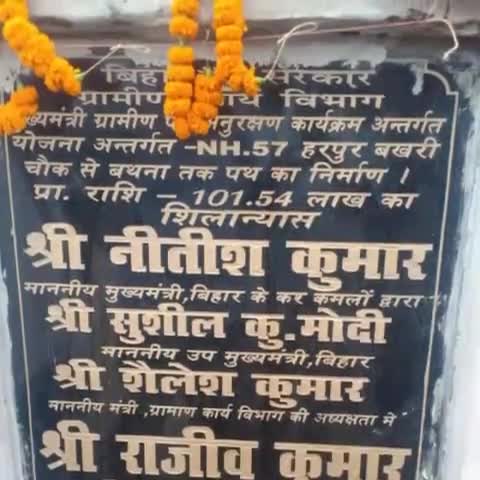 बिहार सरकार
ग्रामीण कार्य विभाग
मुख्यमंत्री ग्रामीण अनुरक्षण कार्यक्रम अन्तर्गत
योजना अन्तर्गत -NH.57 हरपुर बखरी
चौक से बथना तक पथ का निर्माण ।
प्रा. राशि - 101.54 लाख का
शिलान्यास
श्री नीतीश कुमार
माननीय मुख्यमंत्री,बिहार के कर कमलों द्वारा
श्री सुशील कु.मोदी
माननीय उप मुख्यमंत्री,बिहार
श्री शैलेश कुमार
माननीय मंत्री ,ग्रामाण कार्य विभाग की अध्यक्षता में
श्री राजीव कुमार